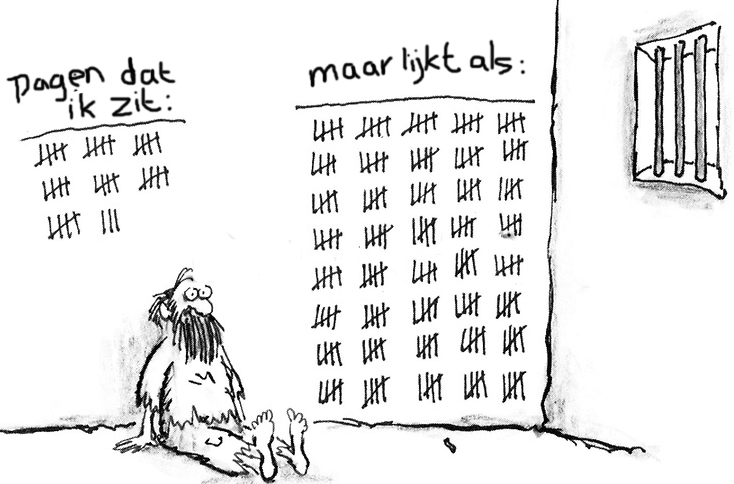 Dagen dat
ik zit:
maar lijkt als: